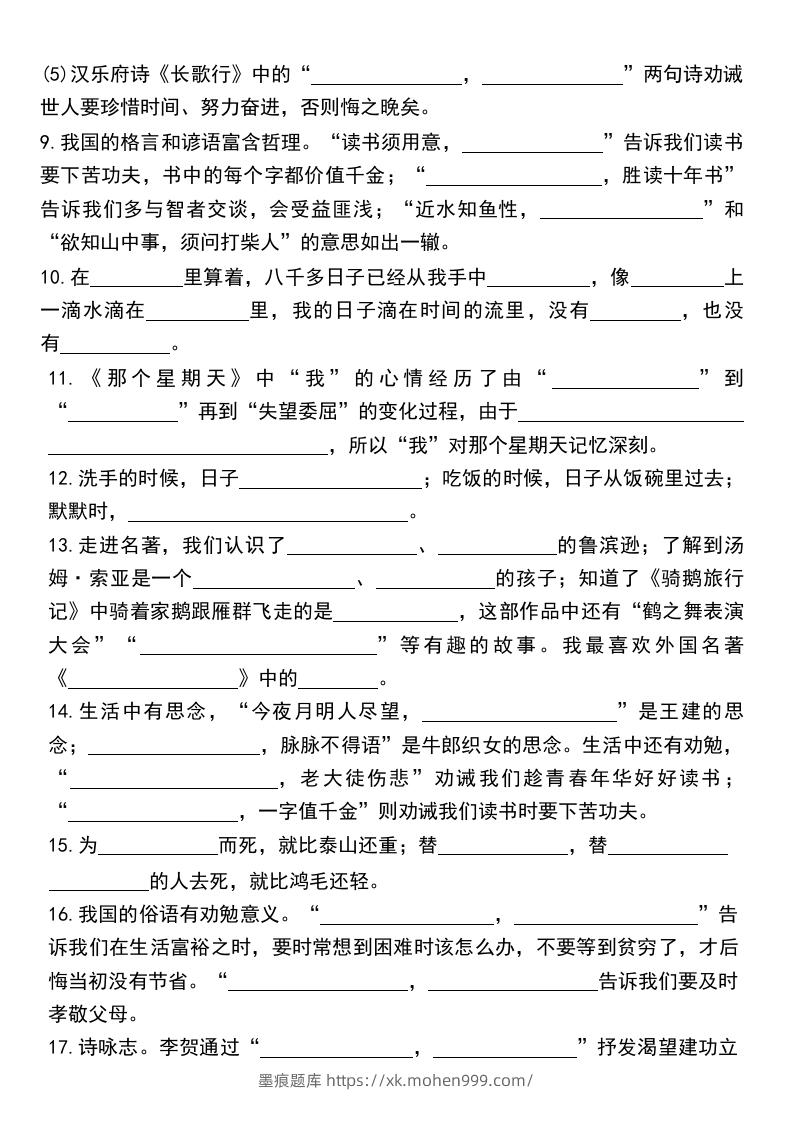 (5)汉乐府诗《长歌行》中的“____________，____________”两句诗劝诫
世人要珍惜时间、努力奋进，否则悔之晚矣。
9.我国的格言和谚语富含哲理。“读书须用意，____________”告诉我们读书
要下苦功夫，书中的每个字都价值千金；“______________，胜读十年书”
告诉我们多与智者交谈，会受益匪浅；“近水知鱼性，______________”和
“欲知山中事，须问打柴人”的意思如出一辙。
10.在________里算着，八千多日子已经从我手中________，像________上
一滴水滴在________里，我的日子滴在时间的流里，没有________，也没
有________。
11.《那个星期天》中“我”的心情经历了由“____________”到
“________”再到“失望委屈”的变化过程，由于__________________
______________________，所以“我”对那个星期天记忆深刻。
12.洗手的时候，日子______________；吃饭的时候，日子从饭碗里过去；
默默时，______________________。
13.走进名著，我们认识了__________、__________的鲁滨逊；了解到汤
姆·索亚是一个____________、__________的孩子；知道了《骑鹅旅行
记》中骑着家鹅跟雁群飞走的是__________，这部作品中还有“鹤之舞表演
大会”“__________________”等有趣的故事。我最喜欢外国名著
《______________》中的______。
14.生活中有思念，“今夜月明人尽望，________________”是王建的思
念；______________，脉脉不得语”是牛郎织女的思念。生活中还有劝勉，
“________________，老大徒伤悲”劝诫我们趁青春年华好好读书；
“______________，一字值千金”则劝诫我们读书时要下苦功夫。
15.为__________而死，就比泰山还重；替__________，替__________
________的人去死，就比鸿毛还轻。
16.我国的俗语有劝勉意义。“______________，______________”告
诉我们在生活富裕之时，要时常想到困难时该怎么办，不要等到贫穷了，才后
悔当初没有节省。“______________，______________告诉我们要及时
孝敬父母。
17.诗咏志。李贺通过“____________，____________”抒发渴望建功立
墨痕题库 https://xk.mohen999.com/